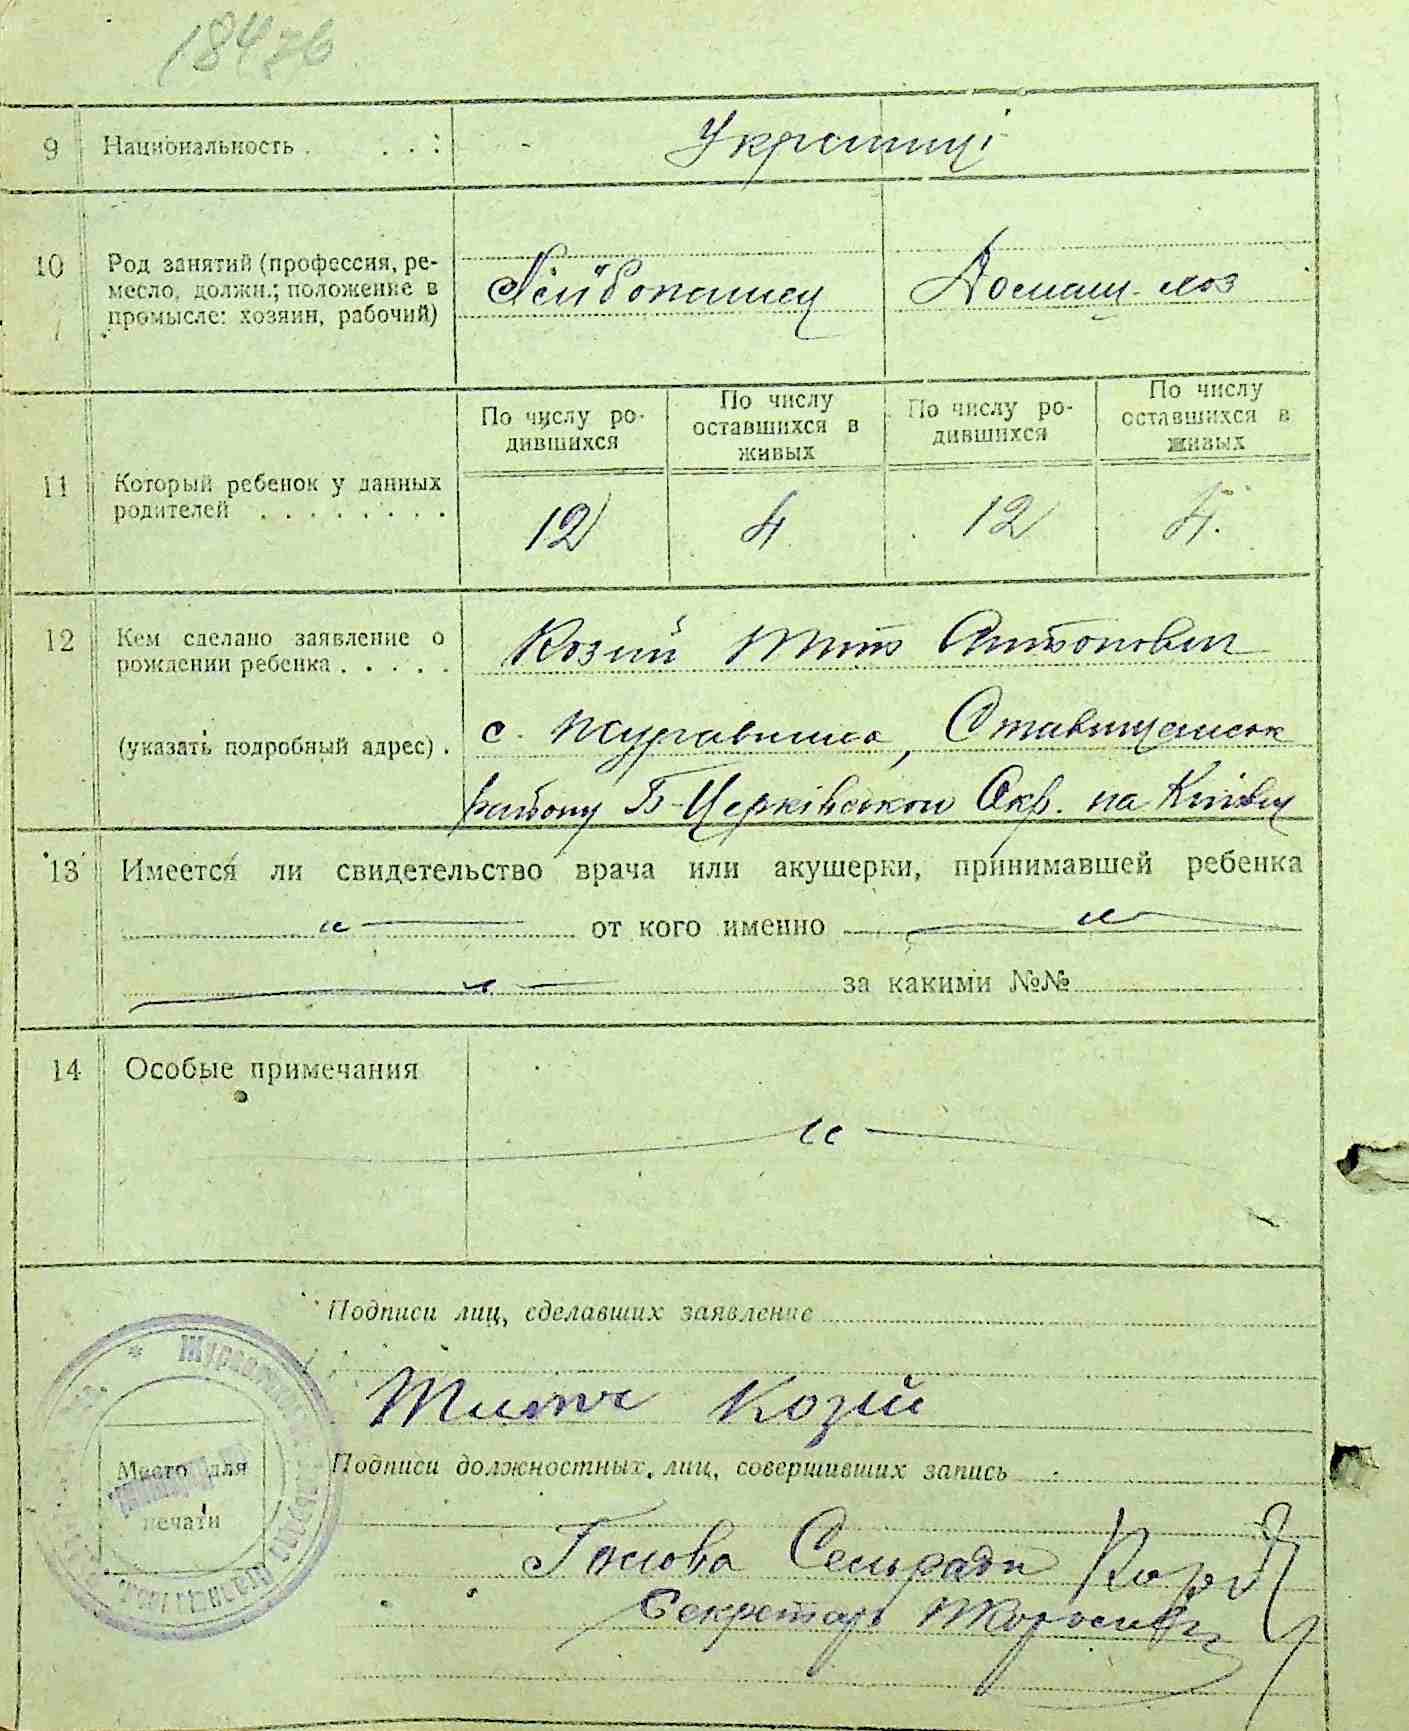 184 зв
9 Национальность . . . : Українці
10 Род занятий (профессия, ре-
месло, должн.; положение в
промысле: хозяин, рабочий)
Хлібопашец Домаш. хоз
По числу ро-
дившихся
По числу
оставшихся в
живых
По числу ро-
дившихся
По числу
оставшихся в
живых
11 Который ребенок у данных
родителей . . . . . . . .
12 4 12 4.
12 Кем сделано заявление о
рождении ребенка . . . . .
Козий Тит Антонович
(указать подробный адрес) .
с. Журавлиха, Ставищенськ
району Б-Церківськой Окр. на Київщ
13 Имеется ли свидетельство врача или акушерки, принимавшей ребенка
от кого именно
за какими №№
14 Особые примечания
Подписи лиц, сделавших заявление
Козій
Подписи должностных лиц, совершивших запись
Место для
печати
Голова Сельради
Секретарь